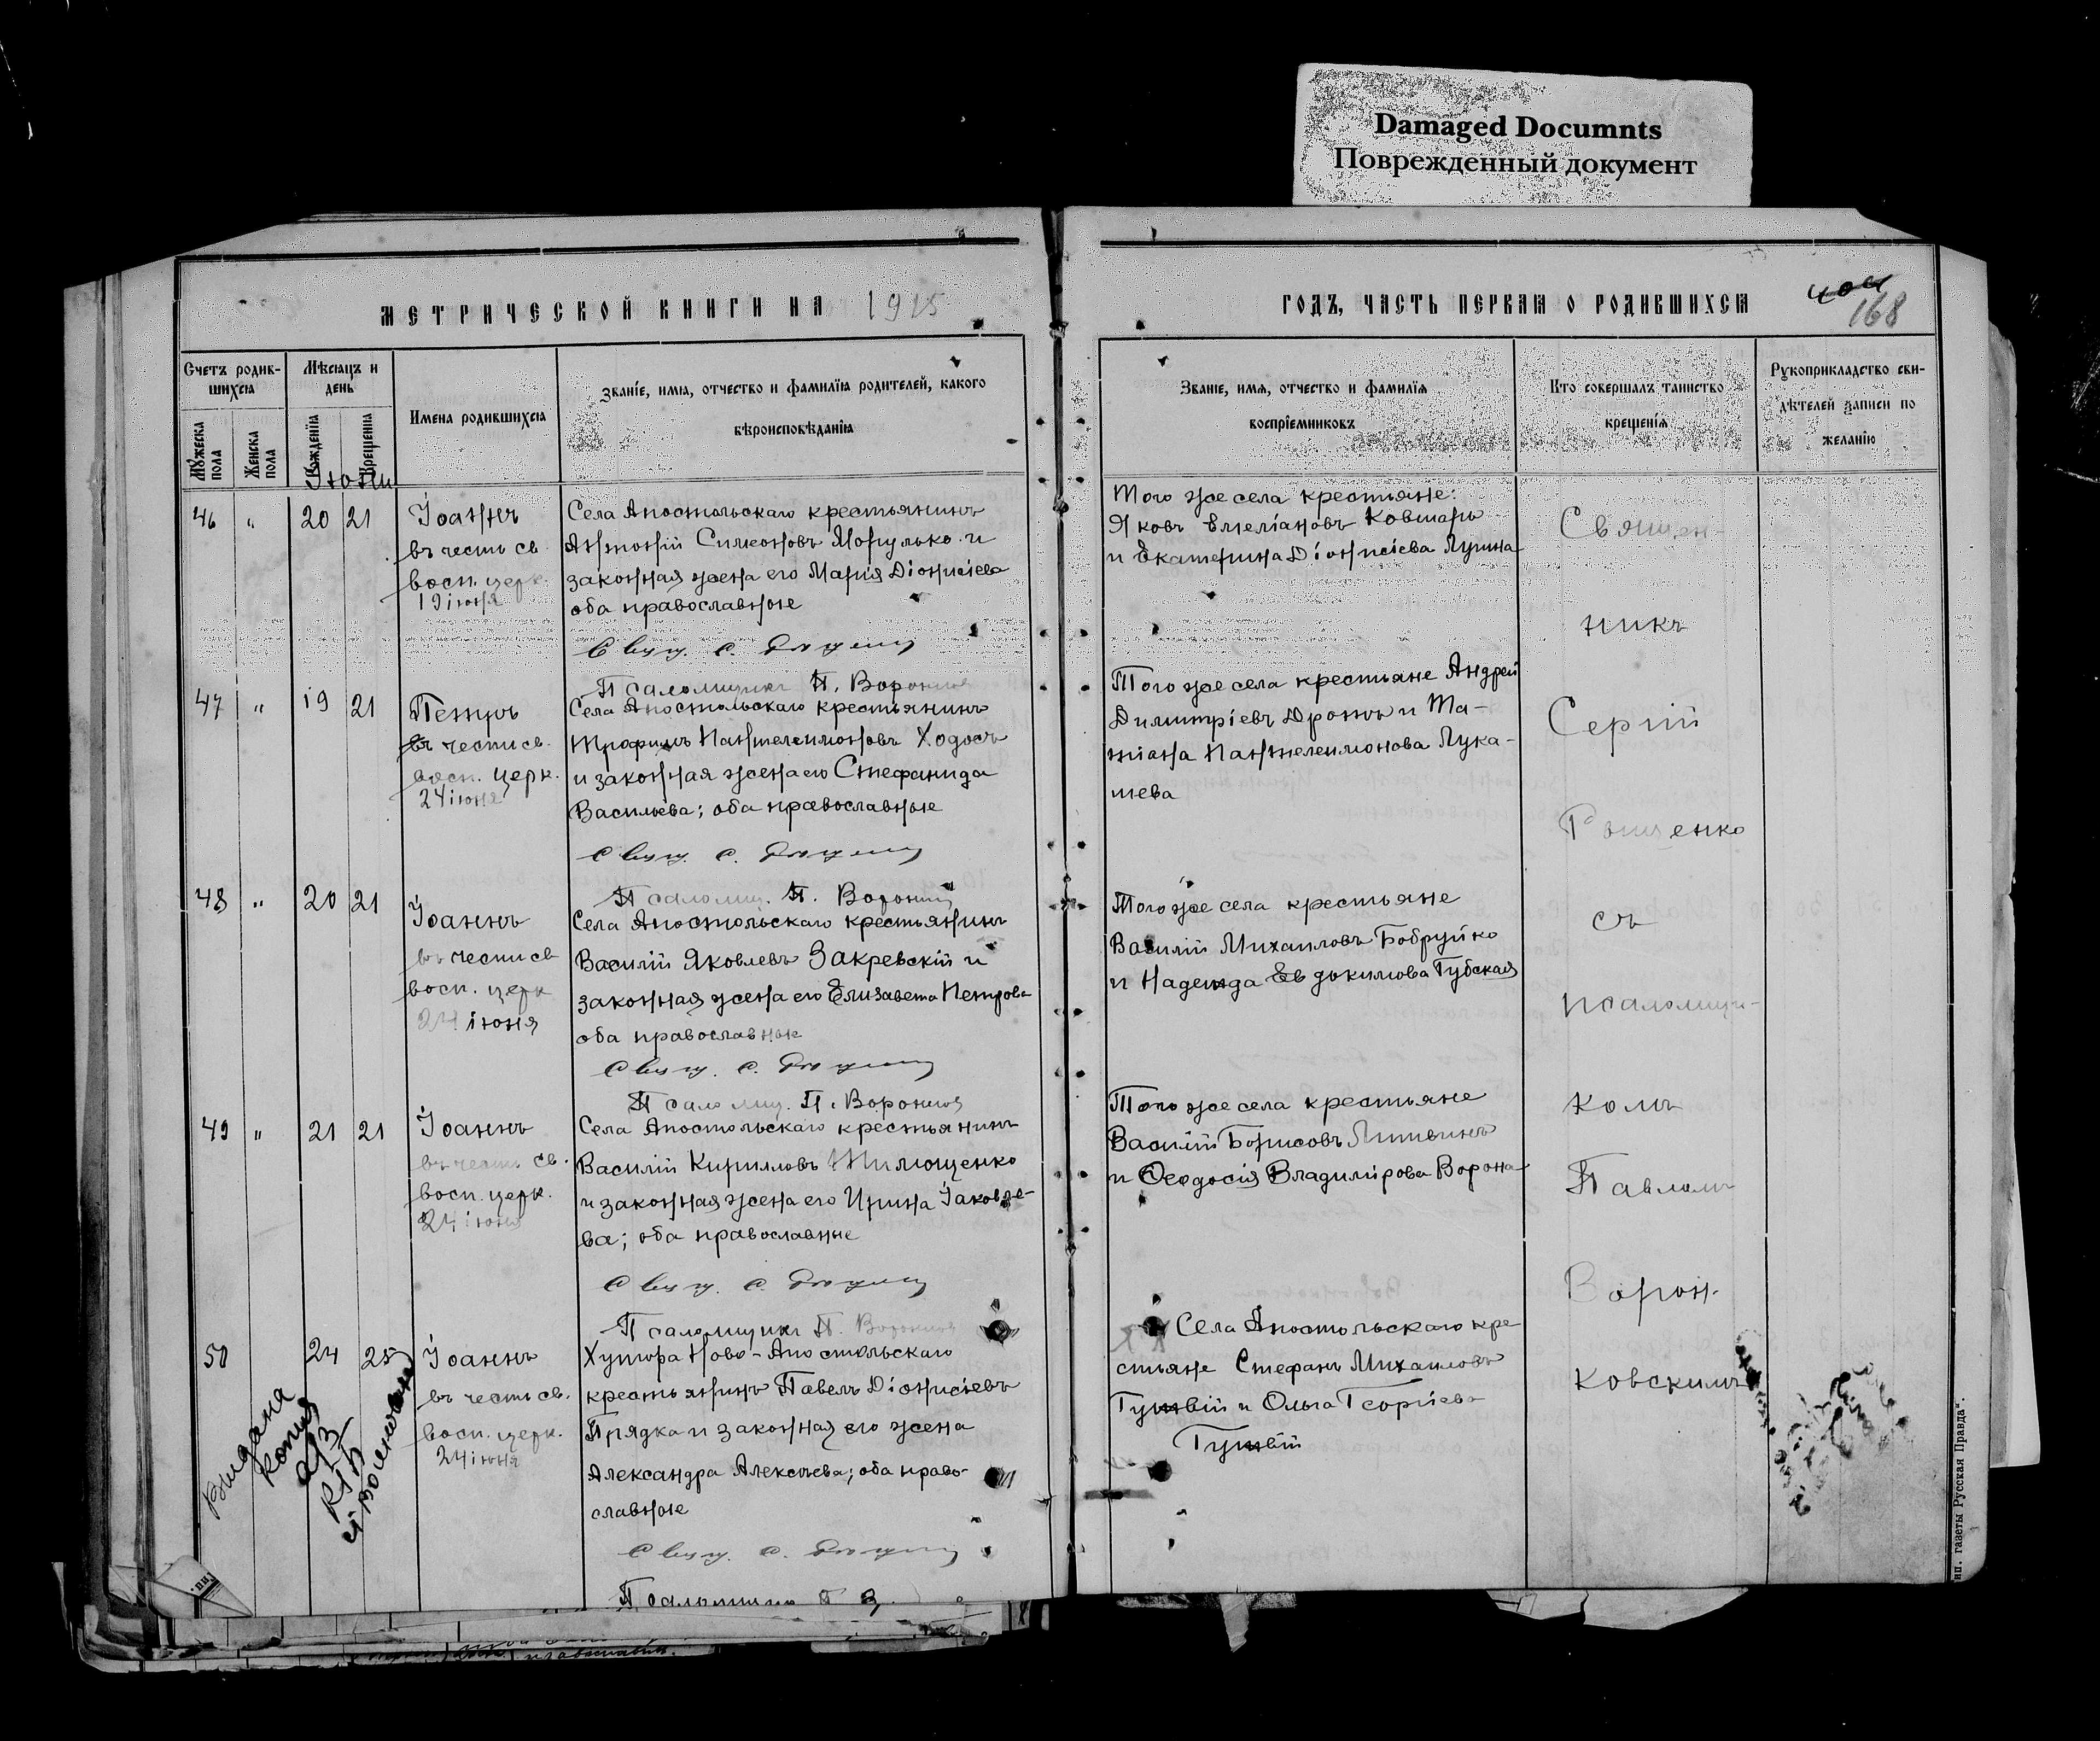 Damaged Documnts
Поврежденный документ
МЕТРИЧЕСКОЙ КНИГИ НА 1915
ГОДЪ, ЧАСТЬ ПЕРВАЯ О РОДИВШИХСЯ
168
Счетъ родив-
шихся
Мужеска пола
Женска пола
Мѣсяцъ и
день
Рожденія
Крещенія
Имена родившихся
Званіе, имя, отчество и фамилія родителей, какого
вѣроисповѣданія
Званіе, имя, отчество и фамилія
воспріемниковъ
Кто совершалъ таинство
крещенія
Рукоприкладство сви-
дѣтелей записи по
желанію
Іюнь
46 " 20 21
Іоаннъ
въ честь св
восп. церк.
19 іюня
Села Апостольскаго крестьянинъ
Антоній Симеоновъ
и
законная жена его Марія Діонисіева
оба православные
Того же села крестьяне:
Яковъ Емеліановъ Ковтаръ
и Екатерина Діонисіева
Псаломщикъ П. Воронков
47 " 19 21
Петръ
въ честь св.
восп. церк.
24 іюня
Села Апостольскаго крестьянинъ
Трофимъ Пантелеимоновъ Ходосъ
и законная жена его Стефанида
Васильева; оба православные
Того же села крестьяне Андрей
Димитріевъ Дронъ и Та-
тіана Пантелеимонова Лука-
шева
Псаломщ. П. Воронков
48 " 20 21
Іоаннъ
въ честь св
восп. церк
24 іюня
Села Апостольскаго крестьянинъ
Василій Яковлевъ Закревскій и
законная жена его Елизавета Петрова
оба православные
Того же села крестьяне
Василій Михаиловъ Бобруйко
и Надежда Евдокимова Губская
Псаломщ. П. Воронков
49 " 21 21
Іоаннъ
въ честь св.
восп. церк.
24 іюня
Села Апостольскаго крестьянинъ
Василій Кирилловъ Тимощенко
и законная жена его Ирина Іаковле-
ва; оба православные
Того же села крестьяне
Василій Борисовъ Литвинъ
и Ѳеодосія Владимірова Ворона
Псаломщикъ П. Воронков
50 24 25
Іоаннъ
въ честь св.
восп. церк.
24 іюня
Хутора Ново-Апостольскаго
крестьянинъ Павелъ Діонисіевъ
Прядка и законная его жена
Александра Алексѣева; оба право-
славные
Села Апостольскаго кре
стьяне Стефанъ Михаиловъ
и Ольга Георгіева
Псаломщикъ
Священ-
никъ
Сергій
съ
псаломщи-
комъ
Павломъ
Ворон-
ковскимъ
Видана
копия
газеты Русская Правда".